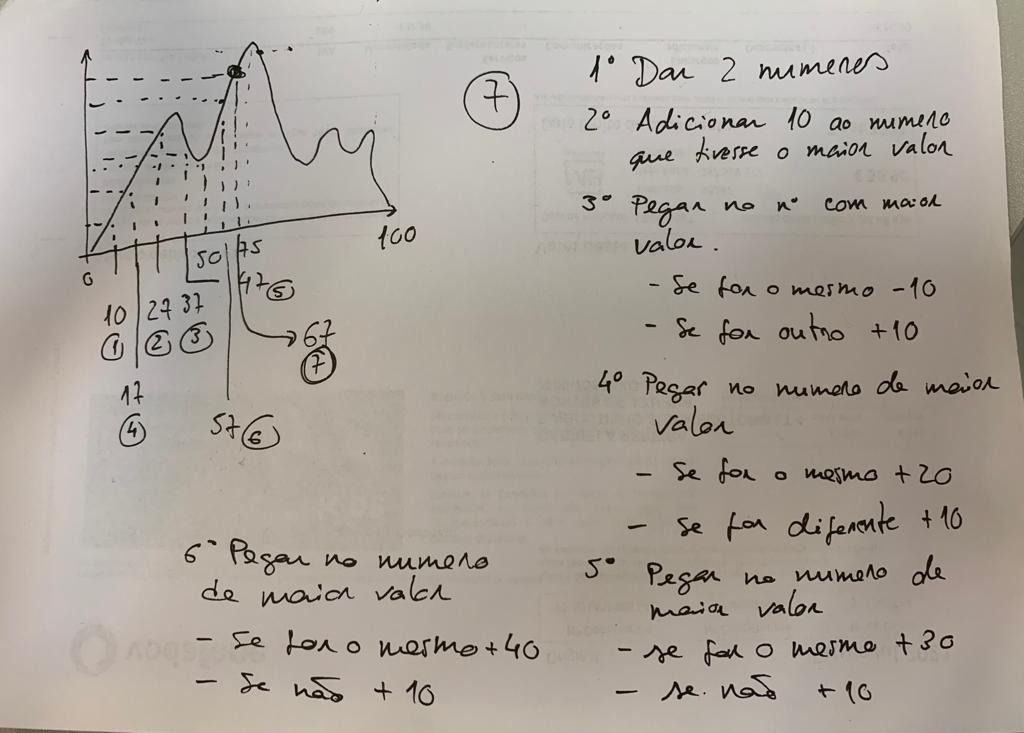 7
1º Dar 2 numeros
2º Adicionar 10 ao numero
que tivesse o maior valor
3º Pegar no nº com maior
valor.
- Se for o mesmo -10
- Se for outro +10
4º Pegar no numero de maior
valor
- Se for o mesmo +20
- Se for diferente +10
5º Pegar no numero de
maior valor
- se for o mesmo +30
- se não +10
6º Pegar no numero
de maior valor
- Se for o mesmo +40
- Se não +10
0
50
75
100
10
27
37
47 5
1
2
3
67
7
17
4
57 6